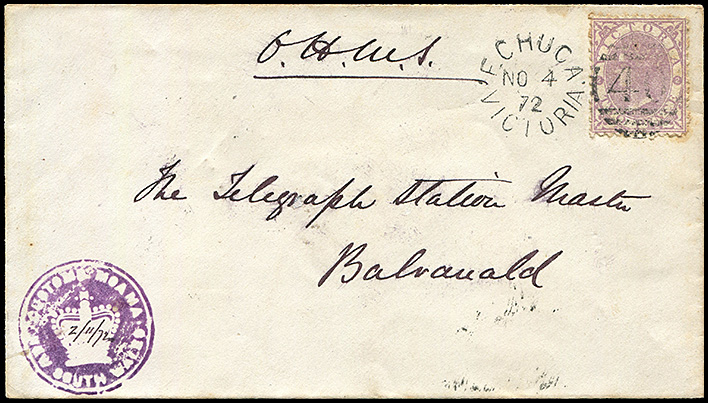 O.H.M.S.
ECHUCA
NO 4
72
VICTORIA
VICTORIA
4
The Telegraph Station Master
Balranald
2/11/72
SOUTH